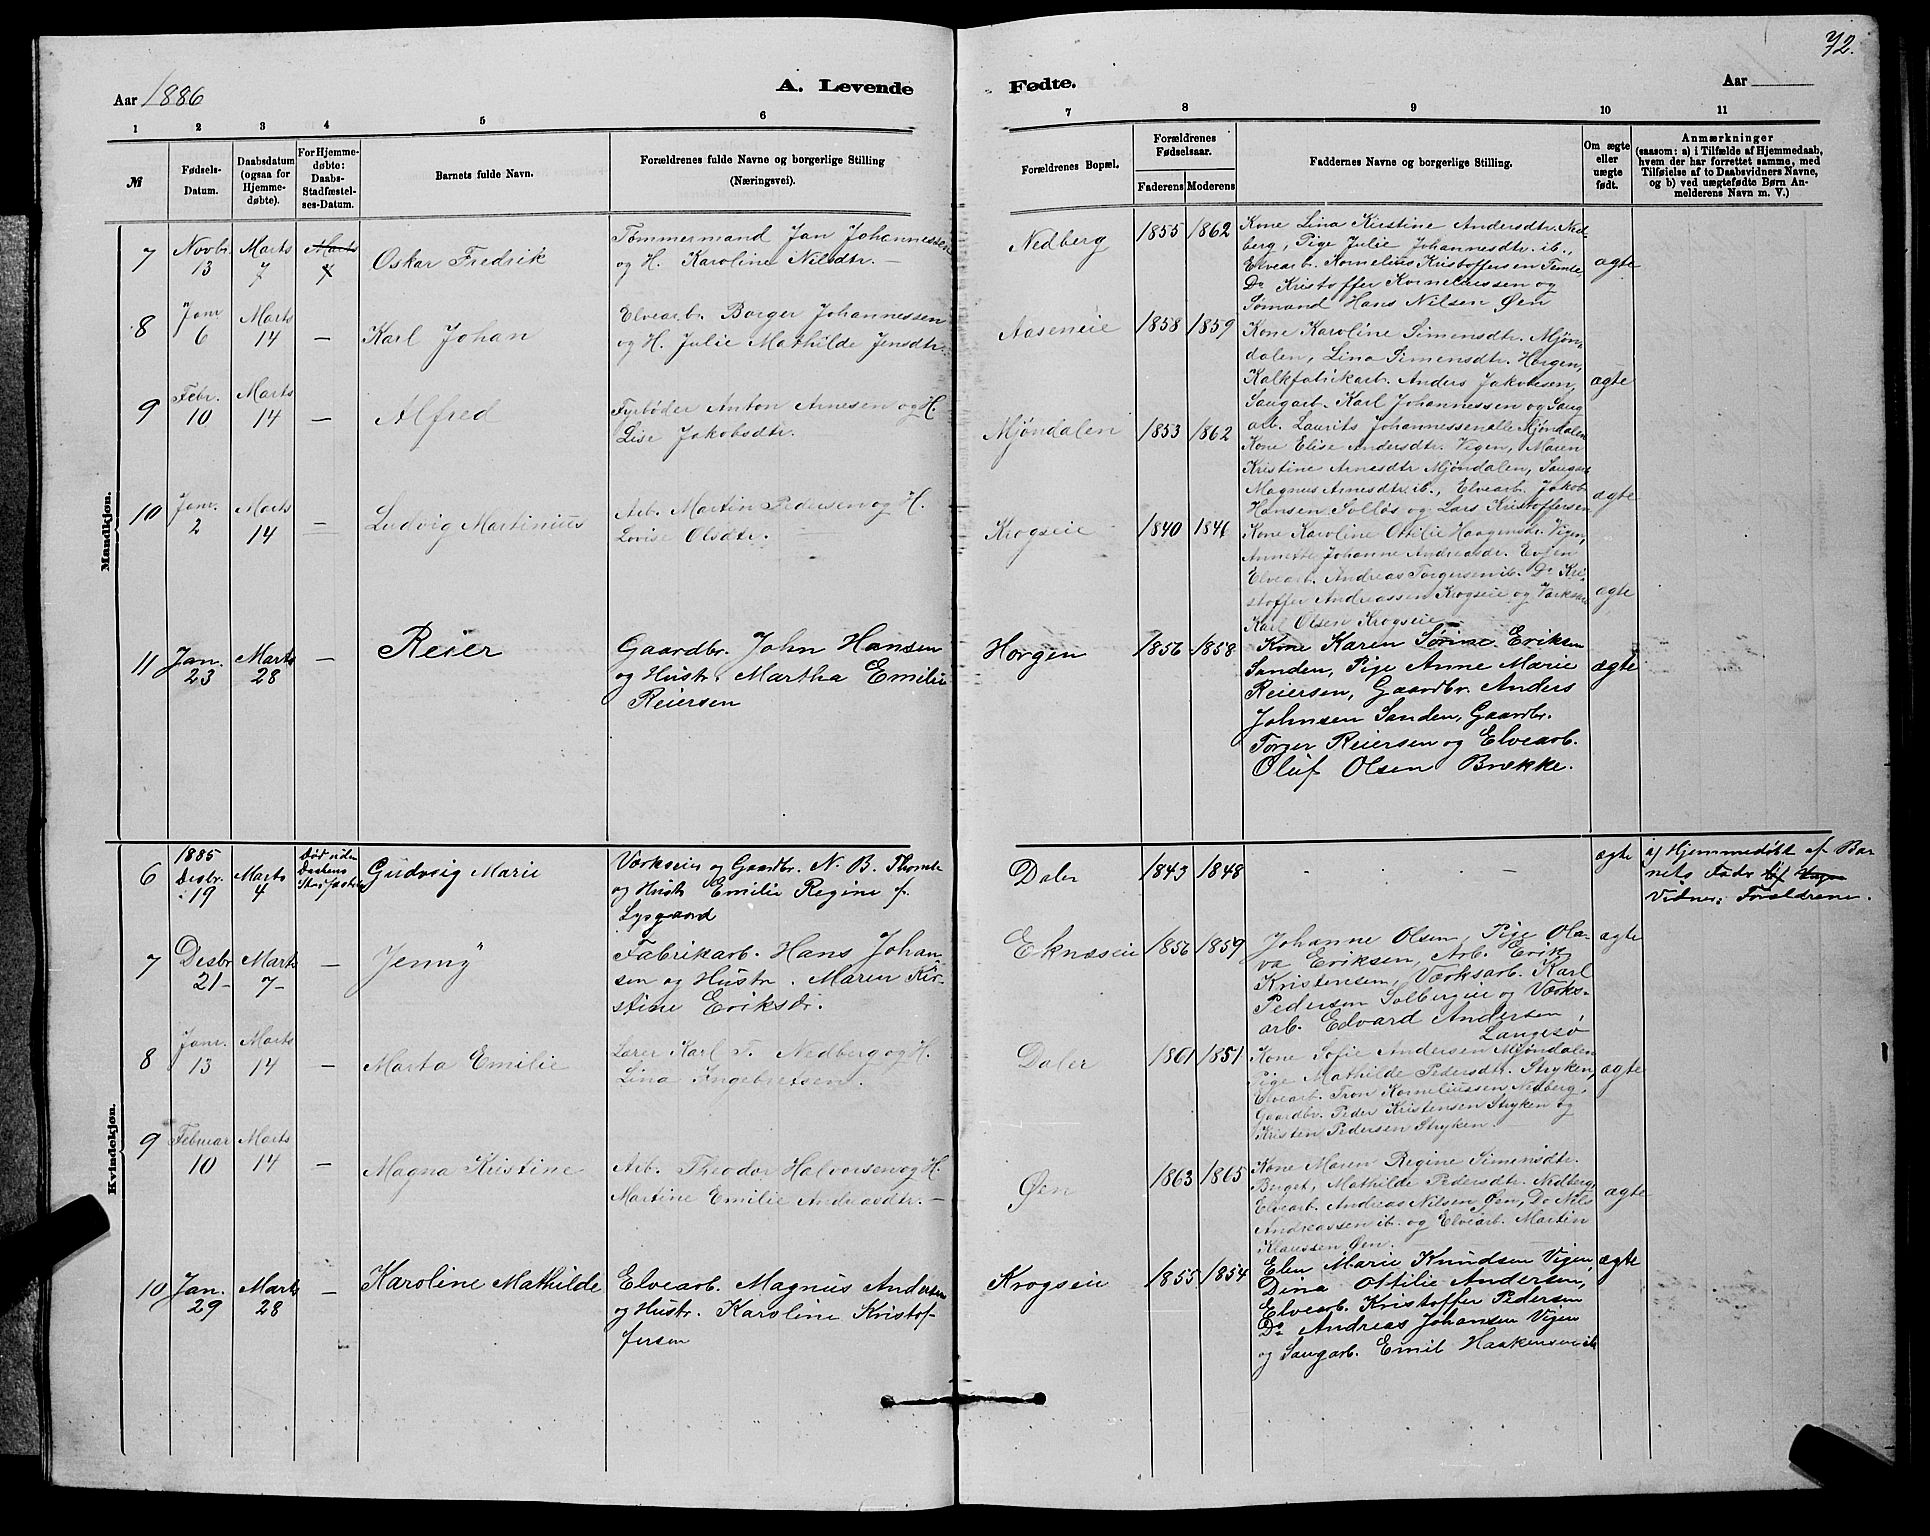 72.
Aar 1886
A. Levende
Fødte.
Aar
1 2 3 4 5 6
7 8 9 10 11
№
Fødsels-
Datum.
Daabsdatum
(ogsaa for
Hjemme-
døbte).
For Hjemme-
døbte:
Daabs-
Stadfæstel-
ses-Datum.
Barnets fulde Navn.
Forældrenes fulde Navne og borgerlige Stilling
(Næringsvei).
Forældrenes Bopæl.
Forældrenes
Fødselsaar.
Faderens Moderens
Faddernes Navne og borgerlige Stilling.
Om ægte
eller
uægte
født.
Anmærkninger
(saasom: a) i Tilfælde af Hjemmedaab,
hvem der har forrettet samme, med
Tilføielse af to Daabsvidners Navne,
og b) ved uægtefødte Børn An-
melderens Navn m. V.)
Mandkjøn.
7 Novbr. 13 Marts 7 Marts 7
Oskar Fredrik
Tømmermand Jan Johannessen
og H. Karoline Nilsdtr. —
Nedberg 1855 1862
Kone Lina Kirstine Andersdtr. Ned-
berg, Pige Julie Johannesdtr. ib.,
Elvearb. Kornelius Kristoffersen Temle
Do Kristoffer Korneliussen og
Sømand Hans Nilsen Øen
ægte
8 Janr 6 Marts 14 —
Karl Johan
Elvearb. Borger Johannessen
og H. Julie Mathilde Jensdtr.
Aaseneie 1858 1859
Kone Karoline Simensdtr. Mjøn-
dalen, Lina Simensdtr. Horgen,
Kalkfabrikarb. Anders Jakobsen,
Saugarb. Karl Johannessen og Saug
arb. Laurits Johannessen alle Mjøndalen
ægte
9 Febr. 10 Marts 14 —
Alfred
Fyrbøder Anton Arnesen og H.
Lise Jakobsdtr.
Mjøndalen 1853 1862
Kone Elise Andersdtr. Vigen, Maren
Kristine Arnesdtr Mjøndalen, Saugarb
Magnus Arnesdtr. ib., Elvearb. Jakob
Hansen Solløs og Lars Kristoffersen
ægte
10 Janr. 2 Marts 14 —
Ludvig Martinius
Arb. Martin Pedersen og H.
Lovise Olsdtr.
Krogseie 1840 1846
Kone Karoline Ottilie Haagensdtr. Vigen,
Johanne Andreasdr. Evjen
Elvearb. Andreas Torgersen ib. Do Kri-
stoffer Andreassen Krogseie og
Karl Olsen Krogseie
ægte
11 Jan. 23 Marts 28 —
Reier
Gaardbr. John Hansen
og Hustr. Martha Emilie
Reiersen
Horgen 1856 1858
Kone Karen Sørine Eriksen
Sanden, Pige Anne Marie
Reiersen, Gaardbr. Anders
Johnsen Sanden, Gaardbr.
Torger Reiersen og Elvearb.
Oluf Olsen Brække.
ægte
Kvindekjøn.
6 1885 Desbr. 19 Marts 4
Død uden
Daabens
Gudveig Marie
Værkseier og Gaardbr. N. B. Thomle
og Hustr Emilie Regine f.
Lysgaard
Daler 1843 1848
— — —
ægte
a) Hjemmedøbt af Bar
nets Fader
Vidner: Forældrene.
7 Desbr 21 Marts 7 —
Jenny
Fabrikarb. Hans Johan-
sen og Hustr. Maren Kir-
stine Eriksdr.
Eknæseie 1856 1859
Johanne Olsen, Pige Ola-
va Eriksen, Arb. Erik
Kristensen, Værksarb. Karl
Pedersen Solbergeie og Værks-
arb. Edvard Andersen,
Langesø
ægte
8 Janr. 13 Marts 14 —
Marta Emilie
Lærer Karl T. Nedberg og H.
Lina Ingebretsen.
Daler 1861 1851
Kone Sofie Andersen Mjøndalen
Pige Mathilde Pedersdtr. Stryken,
Elvearb. Tron Korneliussen Nedberg,
Gaardbr. Peder Kristensen Stryken og
Kristen Pedersen Stryken. —
ægte
9 Februar 10 Marts 14 —
Magna Kristine
Arb. Theodor Halvorsen og H.
Martine Emilie Andreasdtr. —
Øen 1863 1865
Kone Maren Regine Simensdtr.
Berget, Mathilde Pedersdtr. Nedberg,
Elvearb. Andreas Nilsen Øen, Do Nils
Andreassen ib. og Elvearb. Martin
Klaussen Øen.
ægte
10 Jan. 29 Marts 28 —
Karoline Mathilde
Elvearb. Magnus Andersen
og Hustr. Karoline Kristof-
fersen
Krogseie 1855 1854
Elen Marie Knudsen Vigen,
Dina Ottilie Andersen,
Elvearb. Kristoffer Pedersen
Do Andreas Johansen Vigen
og Saugarb. Emil Haakensen ib
ægte